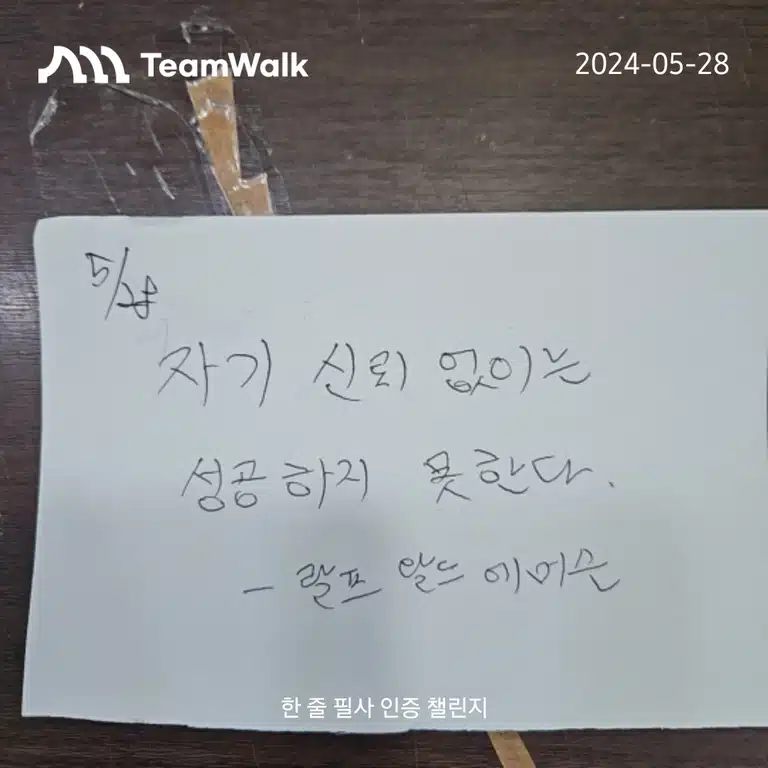 TeamWalk
2024-05-28
5/28
자기 신뢰 없이는
성공하지 못한다.
- 랄프 왈드 에머슨
한 줄 필사 인증 챌린지